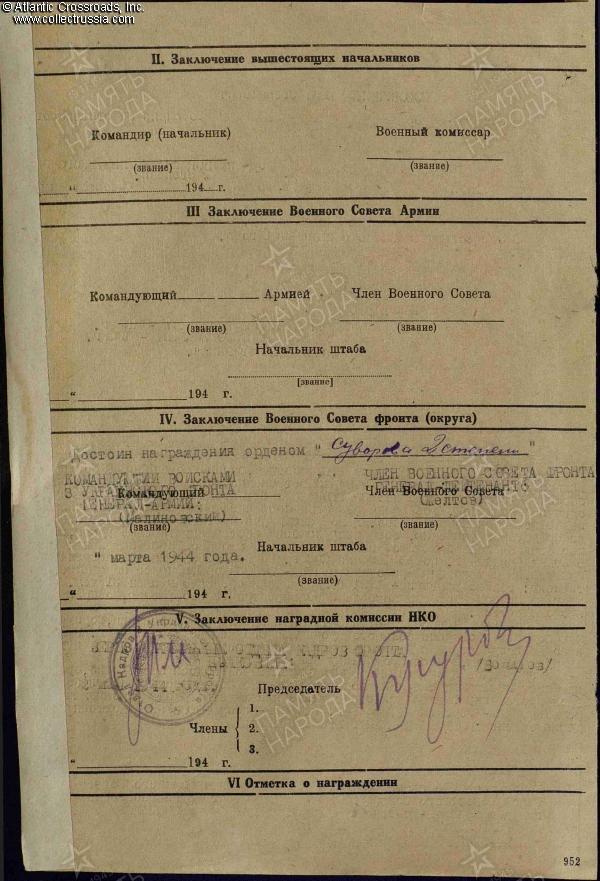 © Atlantic Crossroads, Inc.
www.collectrussia.com
II. Заключение вышестоящих начальников
Командир (начальник) Военный комиссар
(звание) (звание)
" 194 г.
III Заключение Военного Совета Армии
Командующий Армией Член Военного Совета
(звание) (звание)
Начальник штаба
[звание]
" 194 г.
IV. Заключение Военного Совета фронта (округа)
Достоин награждения орденом " Суворова 2 степени "
КОМАНДУЮЩИЙ ВОЙСКАМИ ЧЛЕН ВОЕННОГО СОВЕТА ФРОНТА
3 УКРАИНСКОГО ФРОНТА ГЕНЕРАЛ-ЛЕЙТЕНАНТ
Командующий Член Военного Совета
ГЕНЕРАЛ-АРМИИ: (Желтов)
(Малиновский)
(звание) (звание)
Начальник штаба
" марта 1944 года.
(звание)
" 194 г.
V. Заключение наградной комиссии НКО
КАДРОВ ФРОНТА
Председатель
1.
Члены 2.
3.
" 194 г.
VI Отметка о награждении
952
ПАМЯТЬ НАРОДА